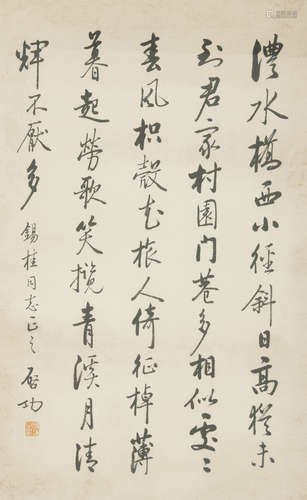 澧水橋西小徑斜日高猶未
到君家村園門巷多相似處〻
春風枳殼花旅人倚征棹薄
暮起勞歌笑攬青溪月清
輝不厭多
錫桂同志正之 啟功